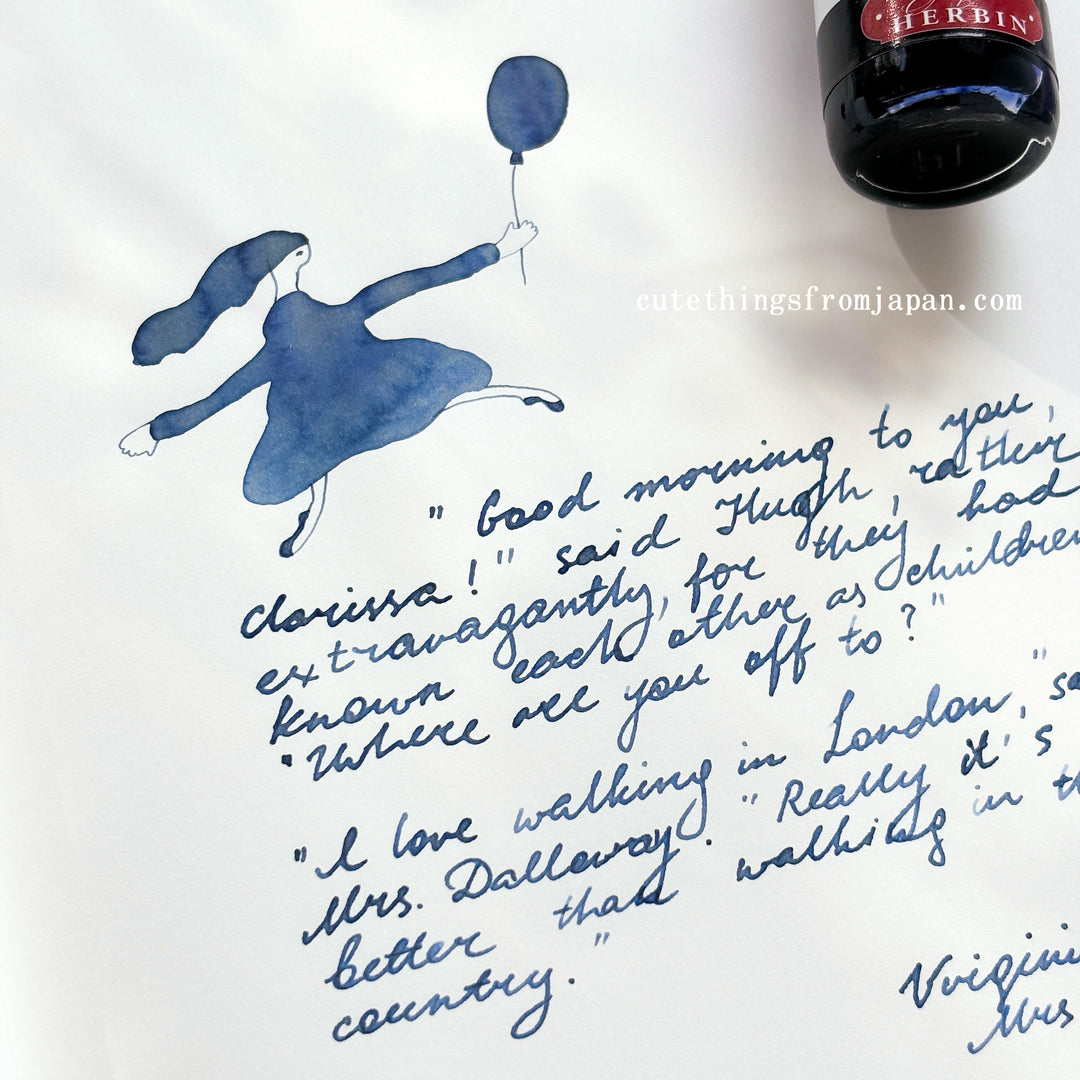 HERBIN
cutethingsfromjapan.com
" Good morning to you,
Clarissa!" said Hugh, rather
extravagantly, for they had
known each other as children.
"Where are you off to?"
"I love walking in London," sa
Mrs. Dalloway. "Really it's
better than walking in th
country."
Virgini
Mrs